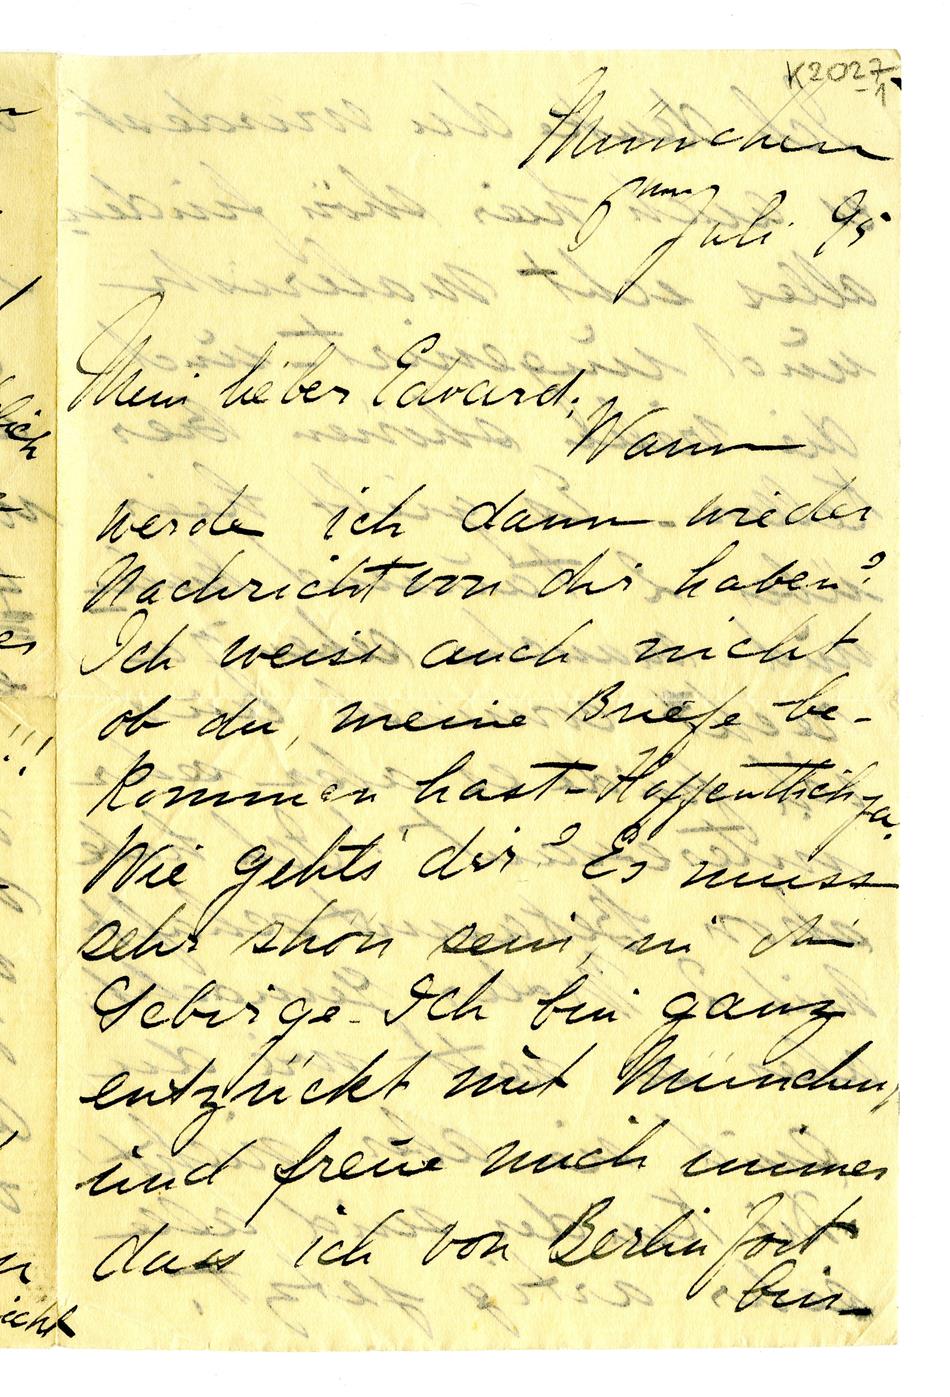 K2027
1
München
6 Juli 95
Mein lieber Edvard;
Wann
werde ich dann wieder
Nachricht von dir haben?
Ich weiss auch nicht
ob du, meine Briefe be-
kommen hast - Hoffentlich ja.
Wie gehts dir? Es muss
sehr shön sein, in die
Gebirge - Ich bin ganz
entzückt mit München,
und freue mich immer
dass ich von Berlin fort
bin -